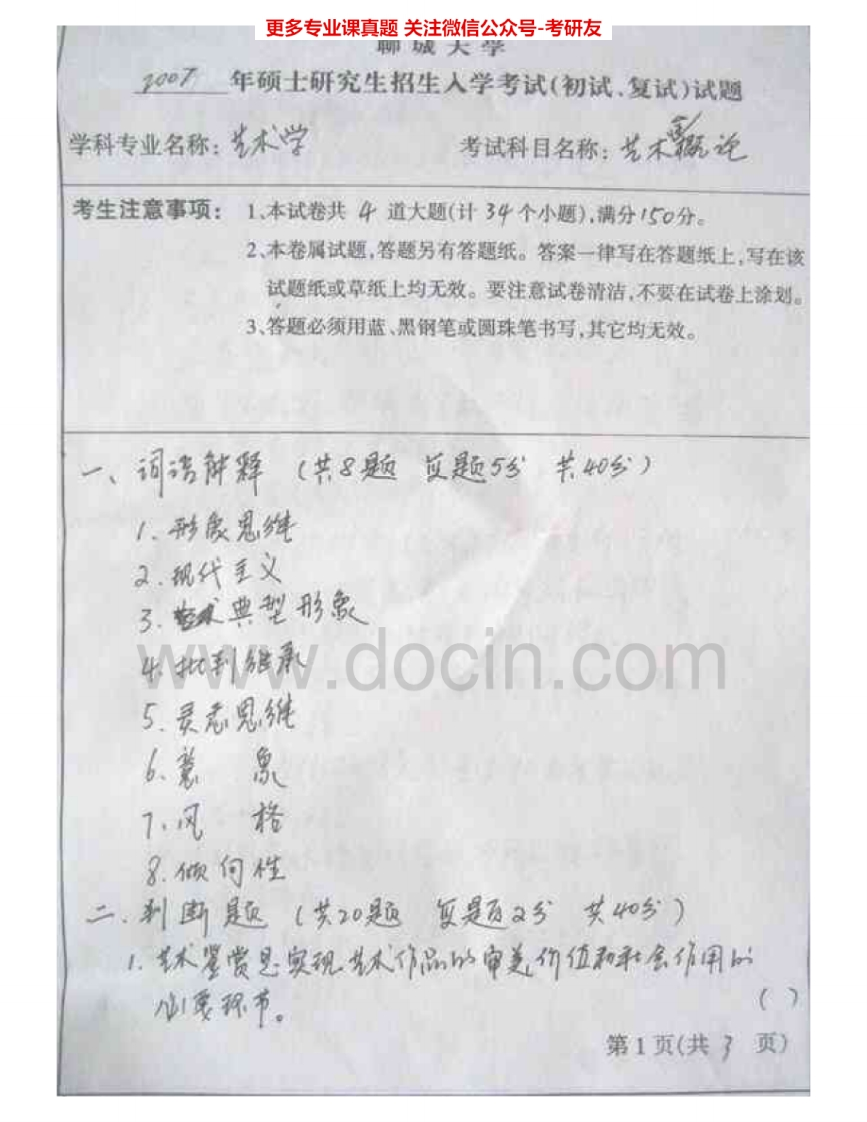 更多专业课真题 关注微信公众号-考研友
聊城大学
2007 年硕士研究生招生入学考试(初试、复试)试题
学科专业名称：艺术学 考试科目名称：艺术概论
考生注意事项： 1、本试卷共 4 道大题(计 34 个小题),满分 150 分。
2、本卷属试题,答题另有答题纸。答案一律写在答题纸上,写在该
试题纸或草纸上均无效。要注意试卷清洁,不要在试卷上涂划。
3、答题必须用蓝、黑钢笔或圆珠笔书写,其它均无效。
一、词语解释 (共8题 每题5分 共40分)
1. 形象思维
2. 现代主义
3. 典型形象
www.docin.com
4. 批判继承
5. 灵感思维
6. 意 象
7. 风 格
8. 倾向性
二、判断题 (共20题 每题2分 共40分)
1. 艺术鉴赏是实现艺术作品的审美价值和社会作用的
必要环节。 ( )
第 1 页(共 3 页)